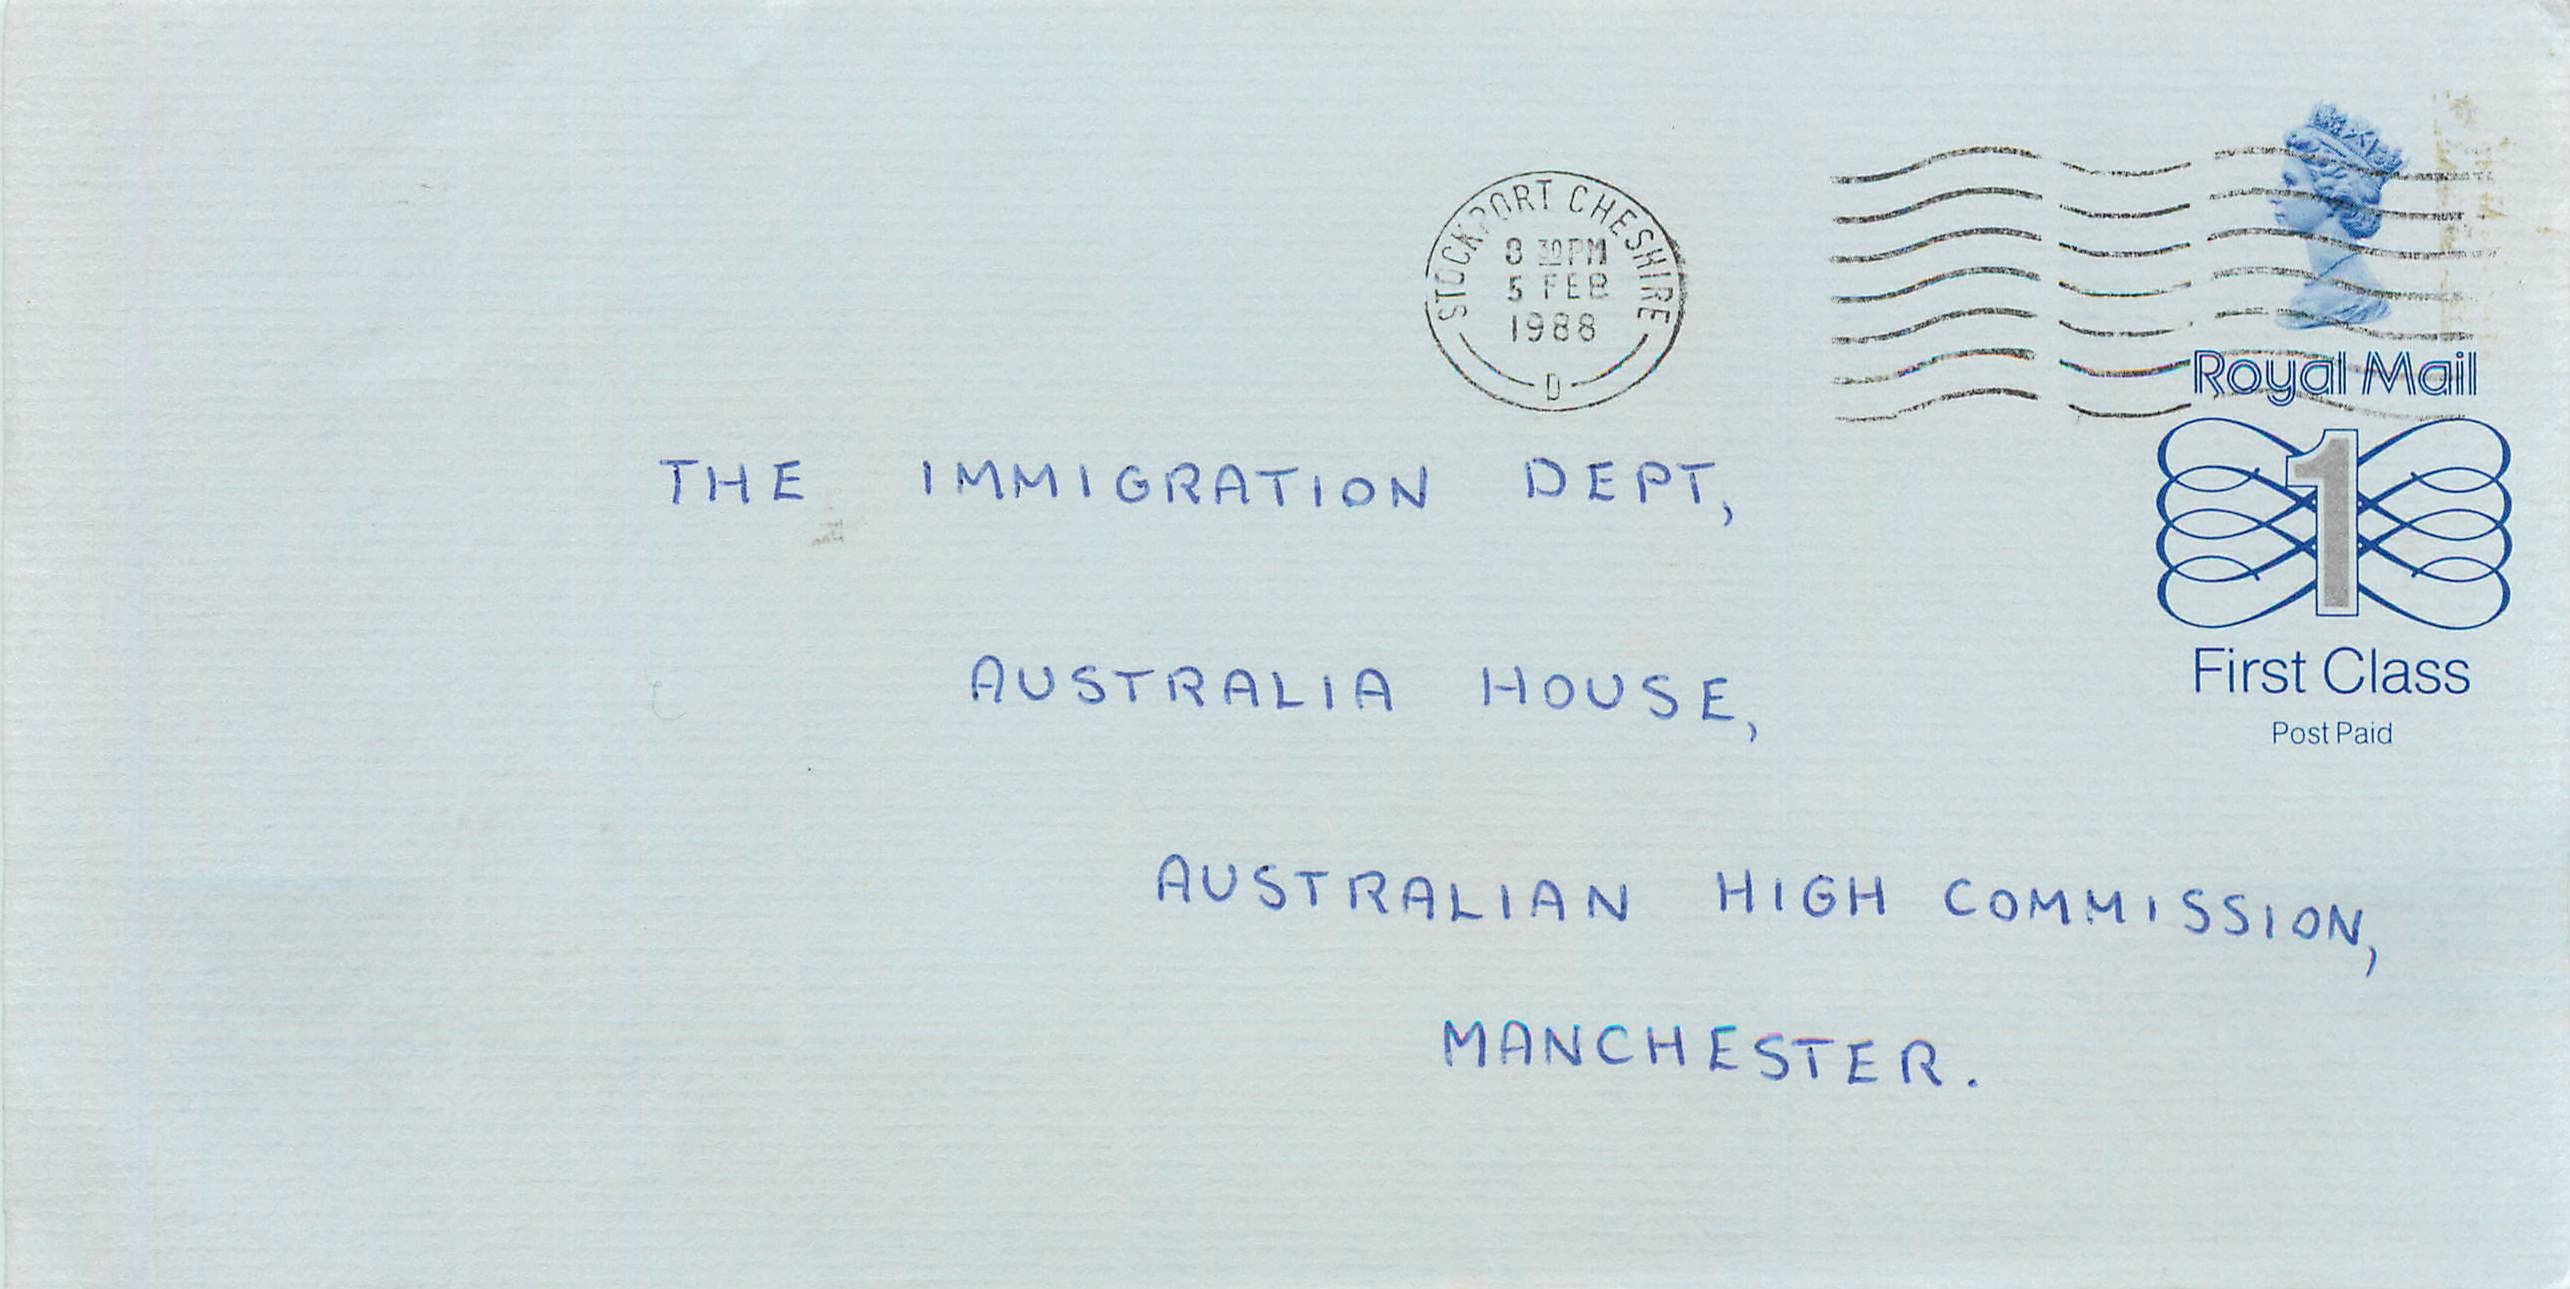 STOCKPORT CHESHIRE
8 30 PM
5 FEB
1988
D
Royal Mail
1
First Class
Post Paid
THE IMMIGRATION DEPT,
AUSTRALIA HOUSE,
AUSTRALIAN HIGH COMMISSION,
MANCHESTER.